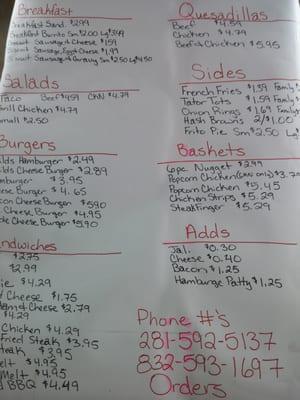 Breakfast
Breakfast Sand. $2.99
Breakfast Burrito Sm $2.00 Lg $3.49
Biscuit Sausage & Cheese $1.59
Biscuit Sausage, Egg & Cheese $1.99
Biscuit Sausage & Gravy Sm $2.50 Lg $4.50
Salads
Taco Beef $4.59 Chkn $4.79
Grill Chicken $4.79
Small $2.50
Burgers
ilds Hamburger $2.49
ilds Cheese Burger $2.89
mburger $3.95
ese Burger $4.65
con Cheese Burger $5.90
Cheese Burger $4.95
Cheese Burger $5.90
ndwiches
$2.75
$2.99
ie $4.29
Cheese $1.75
Ham & Cheese $2.79
$4.29
Chicken $4.29
Fried Steak $3.95
teak $3.95
elt $4.95
Melt $4.95
BBQ $4.49
Quesadillas
Beef $4.59
Chicken $4.79
Beef & Chicken $5.95
Sides
French Fries $1.39 Family $
Tator Tots $1.59 Family $
Onion Rings $1.69 Family $
Hash Browns 2/$1.00
Frito Pie Sm $2.50 L
Baskets
6pc. Nugget $2.99
Popcorn Chicken (small only) $3.7
Popcorn Chicken $5.45
Chicken Strips $5.29
Steak Finger $5.29
Adds
Jal. $0.30
Cheese $0.40
Bacon $1.25
Hamburge Patty $1.25
Phone #'s
281-592-5137
832-593-1697
Orders